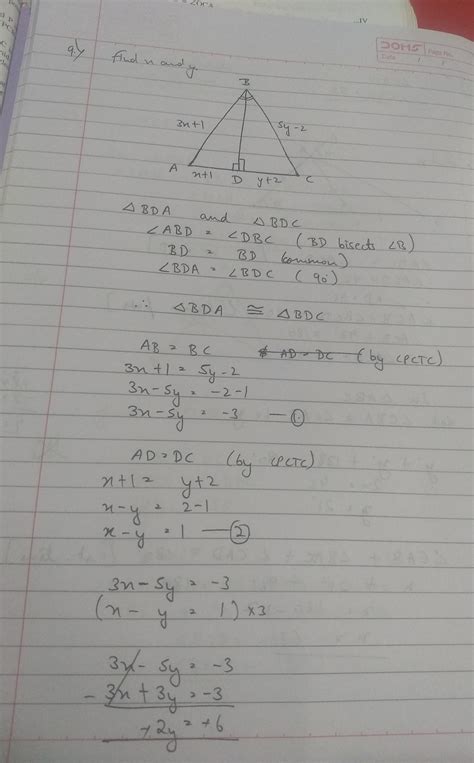 DOMS
Page No.
Date / /
9.) Find x and y.
B
3x+1
5y-2
A
x+1
D
y+2
C
△BDA and △BDC
∠ABD = ∠DBC (BD bisects ∠B)
BD = BD (common)
∠BDA = ∠BDC (90°)
∴ △BDA ≅ △BDC
AB = BC AD = DC (by CPCTC)
3x+1 = 5y-2
3x-5y = -2-1
3x-5y = -3 —①
AD=DC (by CPCTC)
x+1 = y+2
x-y = 2-1
x-y = 1 —②
3x-5y = -3
(x - y = 1) ×3
3x - 5y = -3
- 3x + 3y = -3
-2y = +6